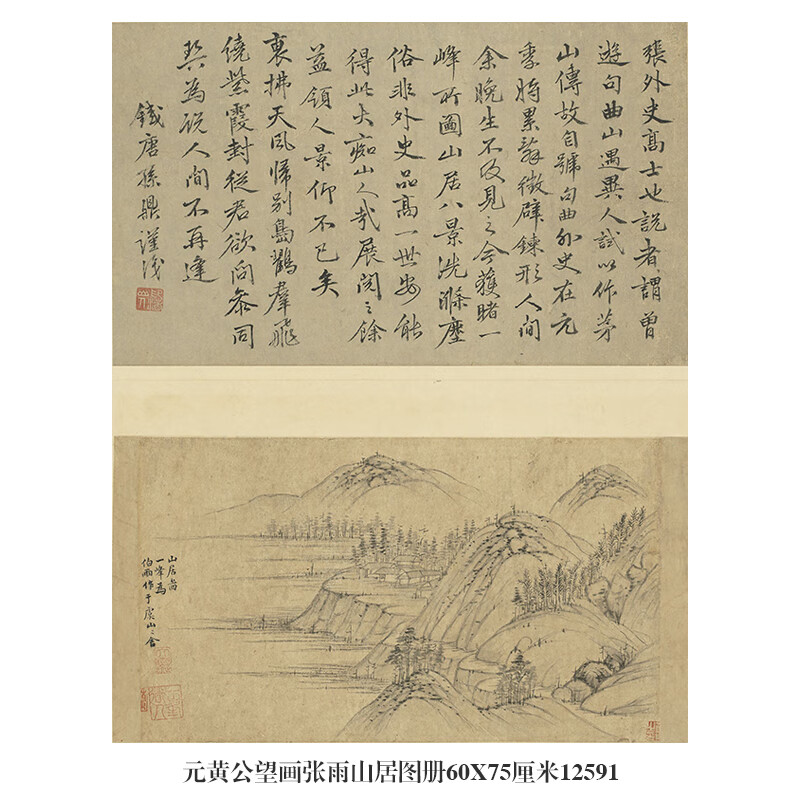 張外史高士也說者謂曾
遊句曲山遇異人試以作茅
山傳故自號句曲外史在元
季時累辭徵辟鍊形人間
余晚生不及見之今獲睹一
峰所圖山居八景洗滌塵
俗非外史品高一世安能
得此大癡山人哉展閱之餘
益領人景仰不已矣
裏拂天風歸別島鸖羣飛
繞紫霞封從君欲向叅同
契為說人間不再逢
錢唐孫鼎謹識
山居圖
一峯為
伯雨作于虞山之舍
元黄公望画张雨山居图册60X75厘米12591